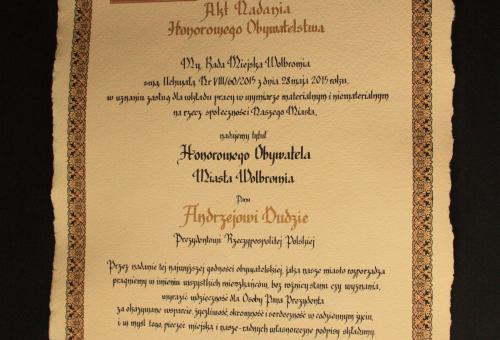 Akt Nadania
Honorowego Obywatelstwa
My, Rada Miejska Wolbromia
swą Uchwałą Nr VIII/60/2015 z dnia 28 maja 2015 roku,
w uznaniu zasług dla wkładu pracy w wymiarze materialnym i niematerialnym
na rzecz społeczności Naszego Miasta,
nadajemy tytuł
Honorowego Obywatela
Miasta Wolbromia
Panu
Andrzejowi Dudzie
Prezydentowi Rzeczypospolitej Polskiej
Przez nadanie tej najwyższej godności obywatelskiej, jaką nasze miasto rozporządza
pragniemy w imieniu wszystkich mieszkańców, bez różnicy stanu czy wyznania,
wyrazić wdzięczność dla Osoby Pana Prezydenta
za okazywane wsparcie, życzliwość, skromność i serdeczność w codziennym życiu,
i w myśl tego, pieczęć miejską i nasze - radnych własnoręczne podpisy składamy.